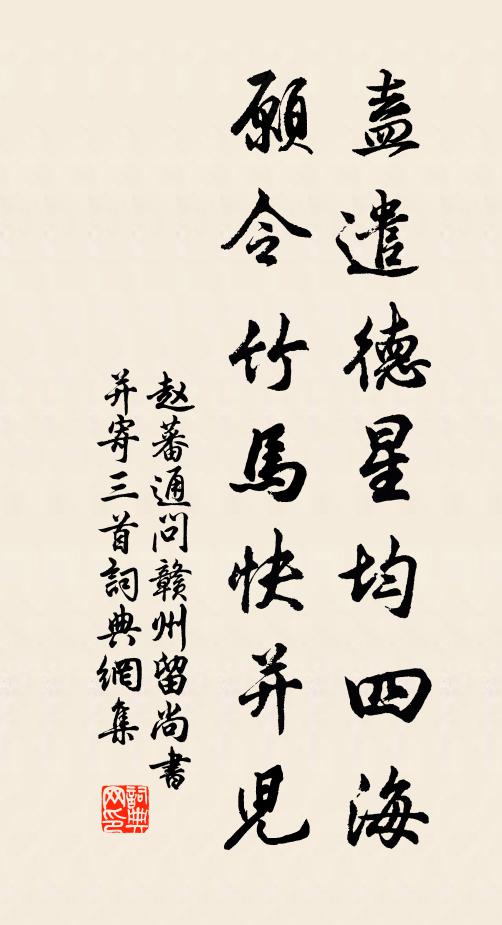 盍遣德星均四海
願令竹馬快并兒
赵蕃通問贛州留尚書
并寄三首詞典網集
詞典
网印